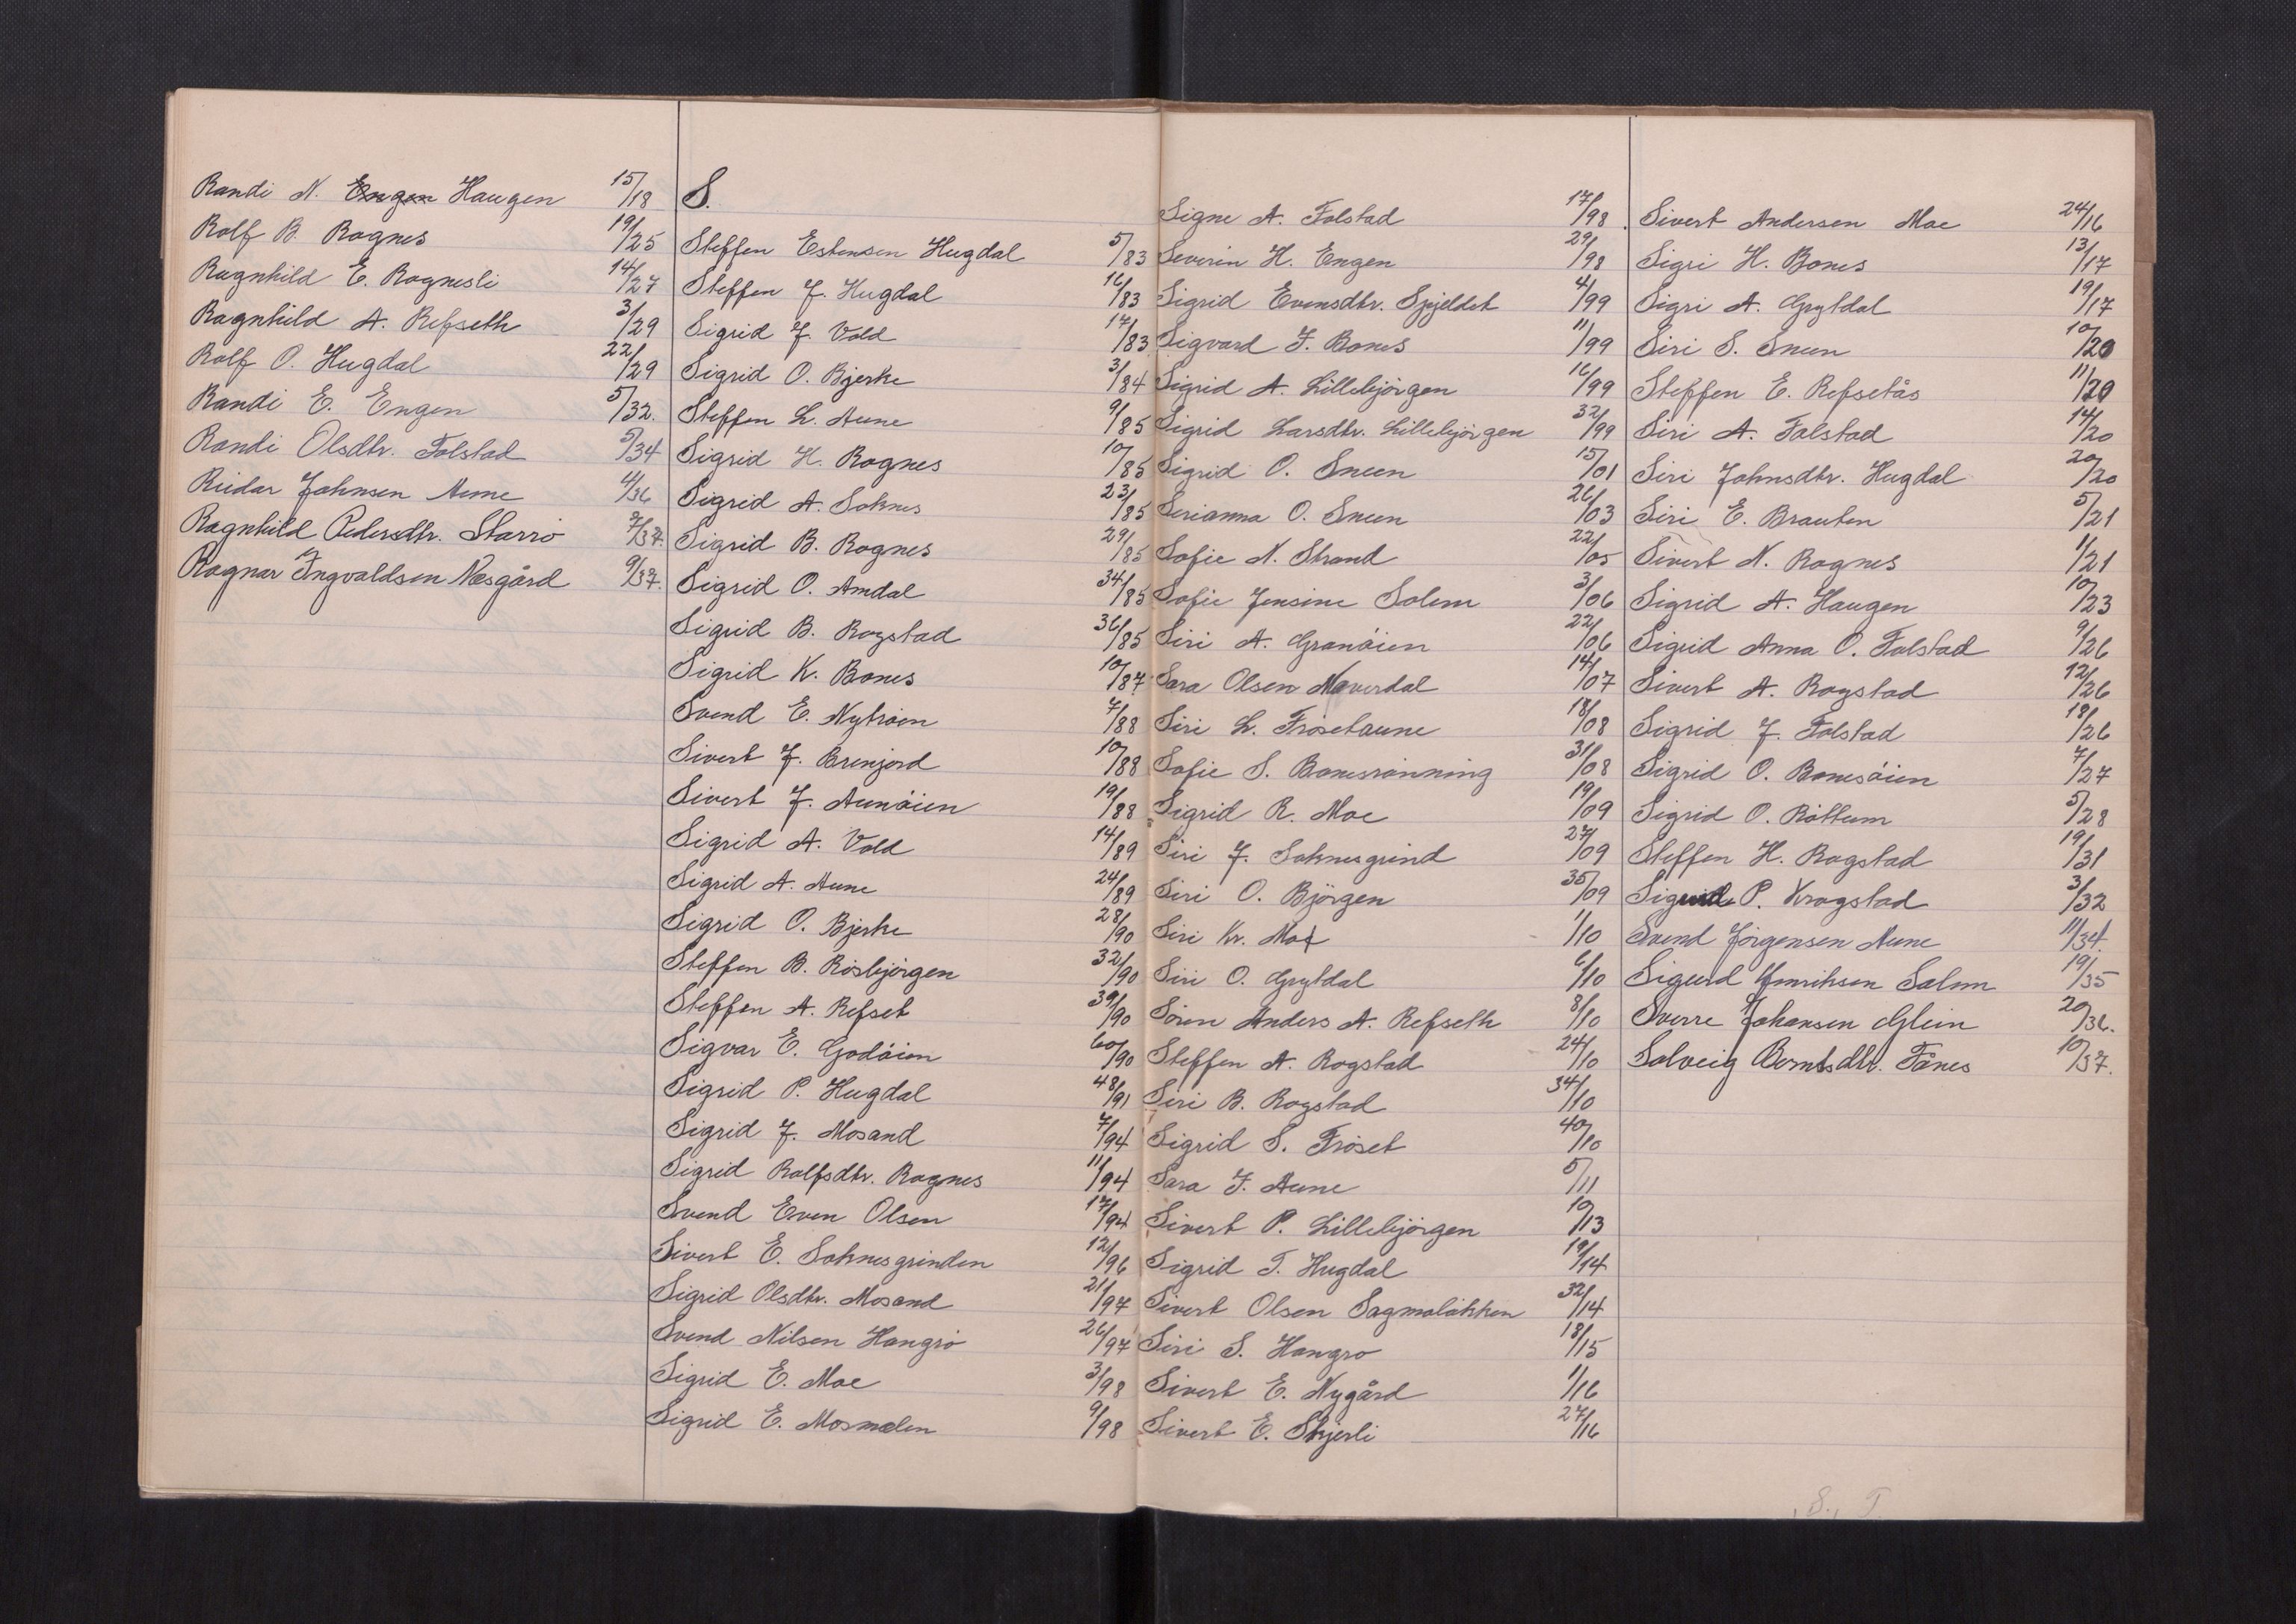 Randi N. Engen Haugen 15/18
Rolf B. Rognes 19/25
Ragnhild E. Rognesli 14/27
Ragnhild A. Refseth 3/29
Rolf O. Hugdal 22/29
Randi E. Engen 5/32.
Randi Olsdtr. Folstad 5/34
Reidar Johnsen Aune 4/36
Ragnhild Pedersdtr. Starrö 7/37.
Ragnar Ingvaldsen Næsgård 9/37.
S.
Steffen Estensen Hugdal 5/83
Steffen J. Hugdal 16/83
Sigrid J. Vold 17/83
Sigrid O. Bjerke 3/84
Steffen L. Aune 9/85
Sigrid H. Rognes 10/85
Sigrid A. Soknes 23/85
Sigrid B. Rognes 29/85
Sigrid O. Amdal 34/85
Sigrid B. Rogstad 36/85
Sigrid K. Bones 10/87
Svend E. Nytröen 7/88
Sivert J. Brenjord 10/88
Sivert J. Aunöien 19/88
Sigrid A. Vold 14/89
Sigrid A. Aune 24/89
Sigrid O. Bjerke 28/90
Steffen B. Rösbjörgen 32/90
Steffen A. Refset 39/90
Sigvar E. Godöien 60/90
Sigrid P. Hugdal 48/91
Sigrid J. Mosand 7/94
Sigrid Rolfsdtr. Rognes 11/94
Svend Even Olsen 17/94
Sivert E. Soknesgrinden 12/96
Sigrid Olsdtr. Mosand 21/97
Svend Nilsen Hangrö 26/97
Sigrid E. Moe 3/98
Sigrid E. Mosmælen 9/98
Signe A. Folstad 17/98
Severin H. Engen 29/98
Sigrid Evensdtr. Spjeldet 4/99
Sigvard F. Bones 11/99
Sigrid A. Lillebjörgen 16/99
Sigrid Larsdtr. Lillebjörgen 32/99
Sigrid O. Sneen 15/01
Serianna O. Sneen 26/03
Sofie N. Strand 22/05
Sofie Jensine Solem 3/06
Siri A. Granöien 22/06
Sara Olsen Naverdal 14/07
Siri L. Frösetaune 18/08
Sofie S. Bonesrönning 31/08
Sigrid R. Moe 19/09
Siri J. Soknesgrind 27/09
Siri O. Björgen 35/09
Siri Kr. Moe 1/10
Siri O. Grytdal 6/10
Sören Anders A. Refseth 8/10
Steffen A. Rogstad 24/10
Siri B. Rogstad 34/10
Sigrid S. Fröset 40/10
Sara F. Aune 5/11
Sivert P. Lillebjörgen 10/13
Sigrid T. Hugdal 19/14
Sivert Olsen Sagmolökken 32/14
Siri S. Hangro 18/15
Sivert E. Nygård 1/16
Sivert E. Skjerli 27/16
Sivert Andersen Moe 24/16
Sigri H. Bones 13/17
Sigri A. Grytdal 19/17
Siri S. Sneen 10/20
Steffen E. Refsetås 11/20
Siri A. Folstad 14/20
Siri Johnsdtr. Hugdal 20/20
Siri E. Brauten 5/21
Sivert N. Rognes 11/21
Sigrid A. Haugen 10/23
Sigrid Anna O. Folstad 9/26
Sivert A. Rogstad 12/26
Sigrid J. Folstad 18/26
Sigrid O. Bonesöien 7/27
Sigrid O. Röttum 5/28
Steffen H. Rogstad 19/31
P. Krogstad 3/32
Svend Jörgensen Aune 11/34.
Sigurd Henriksen Salem 19/35
Sverre Johansen Glein 20/36.
Solveig Berntsdtr. Fånes 10/37.
S., T